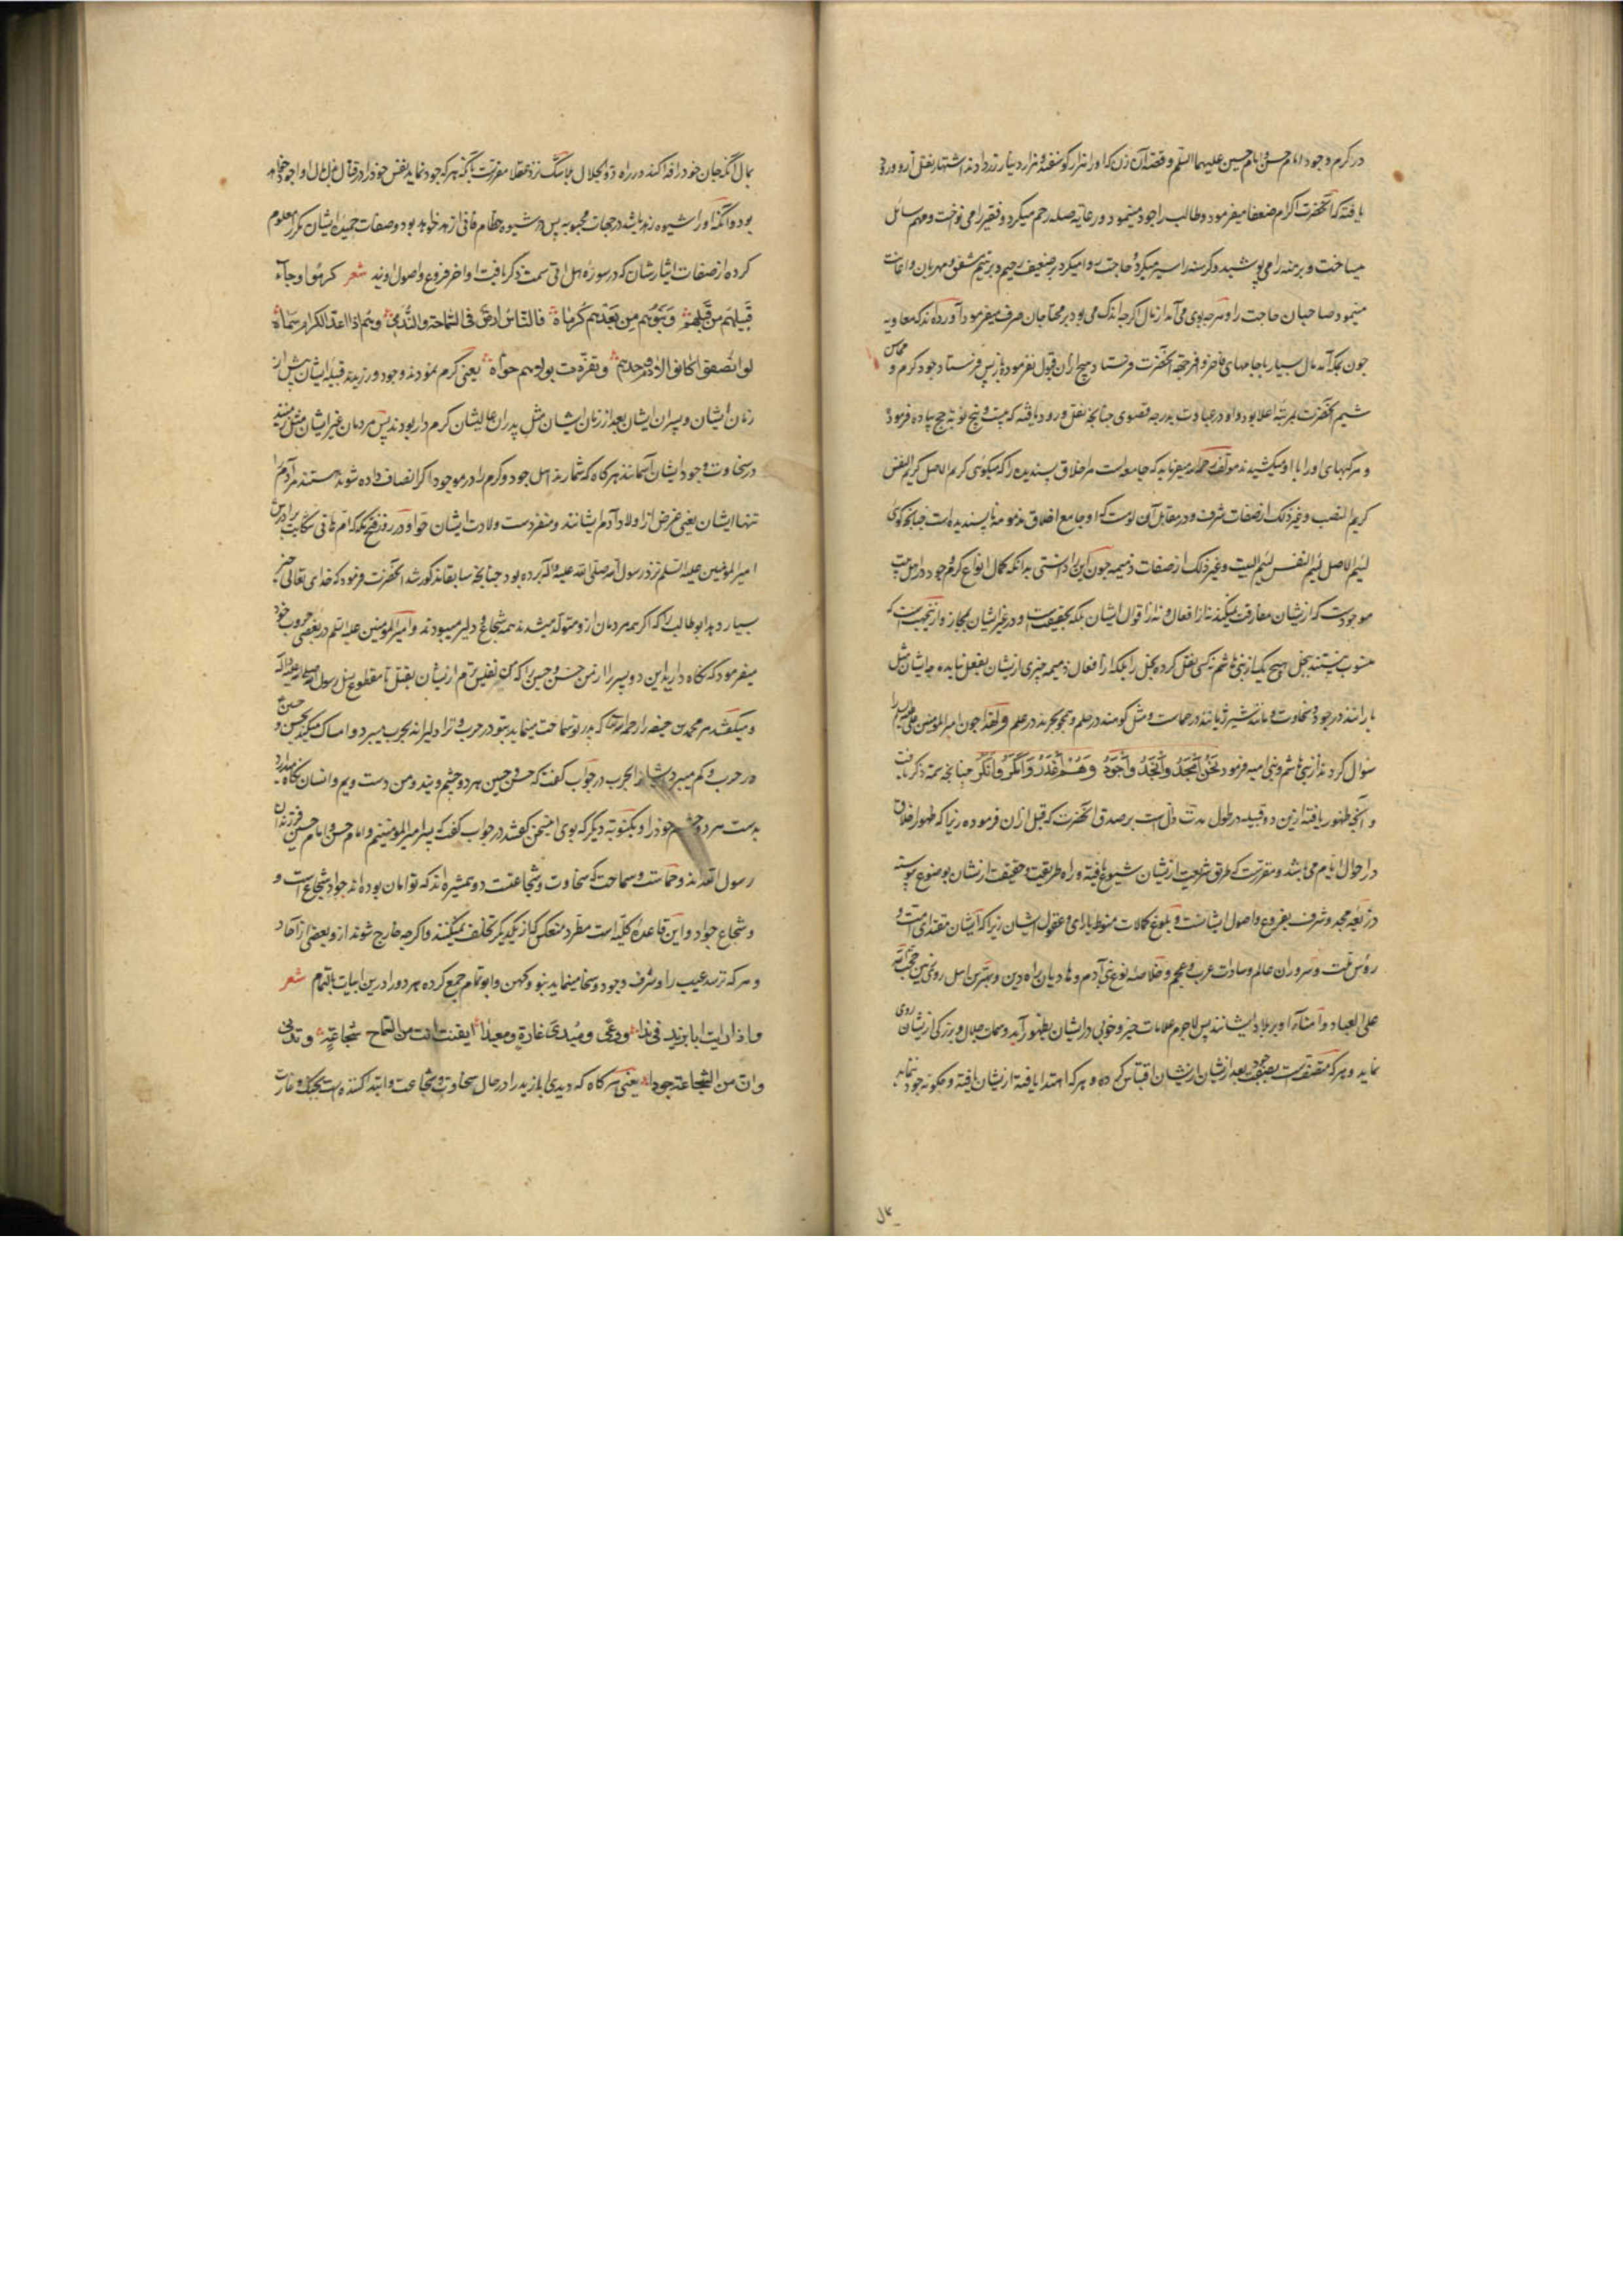 در کرم وجود امام حسن و امام حسین علیهما السلم و قصه آن زن که او را هزار گوسفند و هزار دینار زر دادند اشتهار بنقل آرو ورود
یافته که آنحضرت اکرام ضعفا میفرمود و طالب را جود مینمود و رعایه صله رحم میکرد و فقیر را می نواخت و مهم سائل
میساخت و برهنه را می پوشید و کرسنه را سیر میکرد و حاجت روا میکرد بر ضعیف رحیم و بر یتیم مشفق و مهربان و اعانت
مینمود صاحبان حاجت را و هرچه بوی می آمد از مال اگرچه اندک می بود بر محتاجان صرف میفرمود آورده اند که معاویه
چون بمکه آمد مال بسیار با جامهای فاخر و افر بجهة آنحضرت فرستاد هیچ از آن قبول نفرموده بازپس فرستاد وجود کرم و محاسن
شیم آنحضرت بمرتبه اعلا بود و او در عبادت بدرجه قصوی چنانچه بنقل ورود یافته که بیست و پنج نوبه حج پیاده فرمود
و مرکبهای او را با او میکشیدند مؤلف رحمه الله میفرماید که جامعه است مر اخلاق پسندیده را که میگوئی کریم الاصل کریم النفس
کریم النصب و غیر ذلک از صفات شرف و در مقابل آن لوم است که او جامع اخلاق مذمومه ناپسندیده است چنانچه گوئی
لئیم الاصل لئیم النفس لئیم البیت و غیر ذلک از صفات ذمیمه چون این را دانستی بدانکه کمال انواع کرم وجود در اهل بیت
موجودست که از یشان مفارقت نمیکند نه از افعال و نه از اقوال ایشان بلکه بحقیقت است و در غیر ایشان بمجاز و ازینجهت است که
منسوب نیستند ببخل هیچ یک از بنی هاشم نه کسی نقل کرده بخل را بلکه از افعال ذمیمه چیزی از یشان بفعل نیامده چه ایشان مثل
بارانند در جود و سخاوت و مانند شیر ژیانند در حماست و مثل کوهند در حلم و همچو بحرند در علم و لهذا چون امیر المؤمنین علی علیه السلم را
سؤال کردند از بنی هاشم و بنی امیه فرمود نحن امجد وانجد واجود وهم اغدر وامکر وانکر چنانچه سمة ذکر یافت
و آنچه ظهور یافته ازین دو قبیله در طول مدت دالست بر صدق آنحضرت که قبل ازان فرموده زیرا که ظهور اخلاق
در احوال ایام می باشد و مقررست که طرق شریعت از یشان شیوع یافته و راه طریقت و حقیقت از یشان بوضوع پیوسته
ذریعه مجد و شرف بفروع و اصول ایشانست و بلوغ کمالات منوط بارای و عقول ایشان زیرا که ایشان مقتدای امت و
رؤس ملت و سروران عالم و سادات عرب و عجم و خلاصه نوع بنی آدم و هادیان راه دین و بهترین اهل روی زمین حجج الله
علی العباد و امناء او بر بلاد ایشانند پس لاجرم علامات خیر و خوبی در ایشان بظهور آید و سمات جلال و بزرگی از یشان روی
نماید و هر که متصفست بصفت جود بعد از یشان از یشان اقتباس کرده و هر که اهتدا یافته از یشان یافته و چگونه جود نماید
بمال
بمال آنکه جان خود را فدا کند در راه ذو الجلال بلا شک نزد عقلا مقررست بآنکه هر که جود نماید بنفس خود را در قتال بذل مال او را جود خواهد
بود و آنکه او را شیوه زهد باشد در حیات محبوبه پس در شیوه حطام فانی ازهد خواهد بود و صفات حمیده ایشان مکرر معلوم
کرده از صفات ایثارشان که در سوره هل اتی سمت ذکر یافت اواخر فروع و اصول اویند شعر کرموا وجاد
قبیلهم من قبلهم وبنوهم من بعدهم کرماء فالناس ارض فی السماحة والندی وهم اذا اعد الکرام سماء
لو انصفوا کانوا لآدم وحدهم وتفردت بولادهم حواء یعنی کرم نمودند وجود ورزیدند قبیله ایشان پیش از
زمان ایشان و پسران ایشان بعد از زمان ایشان مثل پدران عالیشان کرم دار بودند پس مردمان غیر ایشان مثل زمینند
در سخاوت وجود و ایشان آسمانند هرگاه که شمارند اهل جود و کرم را در موجود اگر انصاف داده شوند هستند مر آدم را
تنها ایشان یعنی غرض از اولاد آدم ایشانند و منفردست ولادت ایشان حوا و در روز فتح مکه که ام هانی شکایت برادرش
امیر المؤمنین علیه السلم نزد رسول الله صلی الله علیه وآله برده بود چنانچه سابقا مذکور شد آنحضرت فرمود که خدای تعالی خیر
بسیار دهد ابو طالب را که اگر همه مردمان ازو متولد میشدند همه شجاع و دلیر میبودند و امیر المؤمنین علیه السلم در بعضی حروب خود
میفرمود که نگاه دارید این دو پسر را از من حسن و حسین را که من نفیس ترم از یشان بقتل تا مقطوع نسل رسول الله صلی الله علیه وآله
و میگفتند مر محمد بن حنفیه را رحمه الله که پدر تو سماحت مینماید بتو در حرب و ترا دلیرانه بحرب میبرد و امساک میکند بحسن و حسین
در حرب و کم میبرد ایشان را بحرب در جواب گفت که حسن و حسین هر دو چشم ویند و من دست ویم و انسان نگاه میدارد
بدست هر دو چشم خود را و بکنوبه دیگر که بوی اینچنین گفتند در جواب گفت که پسر امیر المؤمنینم و امام حسن و امام حسین فرزندان
رسول الله اند و حماست و سماحت که سخاوت و شجاعتست دو همشیره اند که توامان بوده اند جواد شجاع است و
و شجاع جواد و این قاعده کلیه است مطرد منعکس که از یکدیگر تخلف نمیکنند و اگرچه خارج شوند ازو بعضی از آحاد
و هر که ترسد عیب را و شرف وجود و سخا مینماید بنو و کهن و ابو تمام جمع کرده هر دو را درین ابیات بالتمام شعر
واذا رایت ابا یزید فی ندا ووغی ومبدی غارة ومعیدا ایقنت ان من السماح شجاعة وتدنی
وان من الشجاعة جودا یعنی هرگاه که دیدی ابا یزید را در حال سخاوت و شجاعت و ابتدا کننده است بجنک و غارت